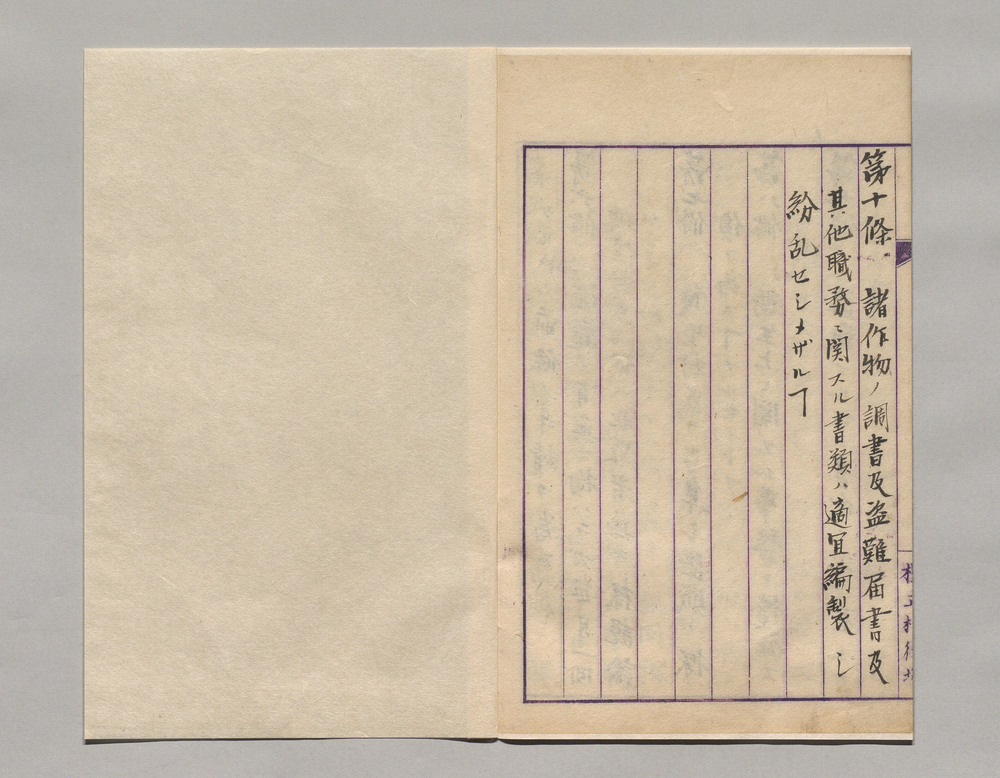 第十條 諸作物ノ調書及盗難届書及
其他職務ニ関スル書類ハ適宜編製シ
紛乱セシメザルヿ